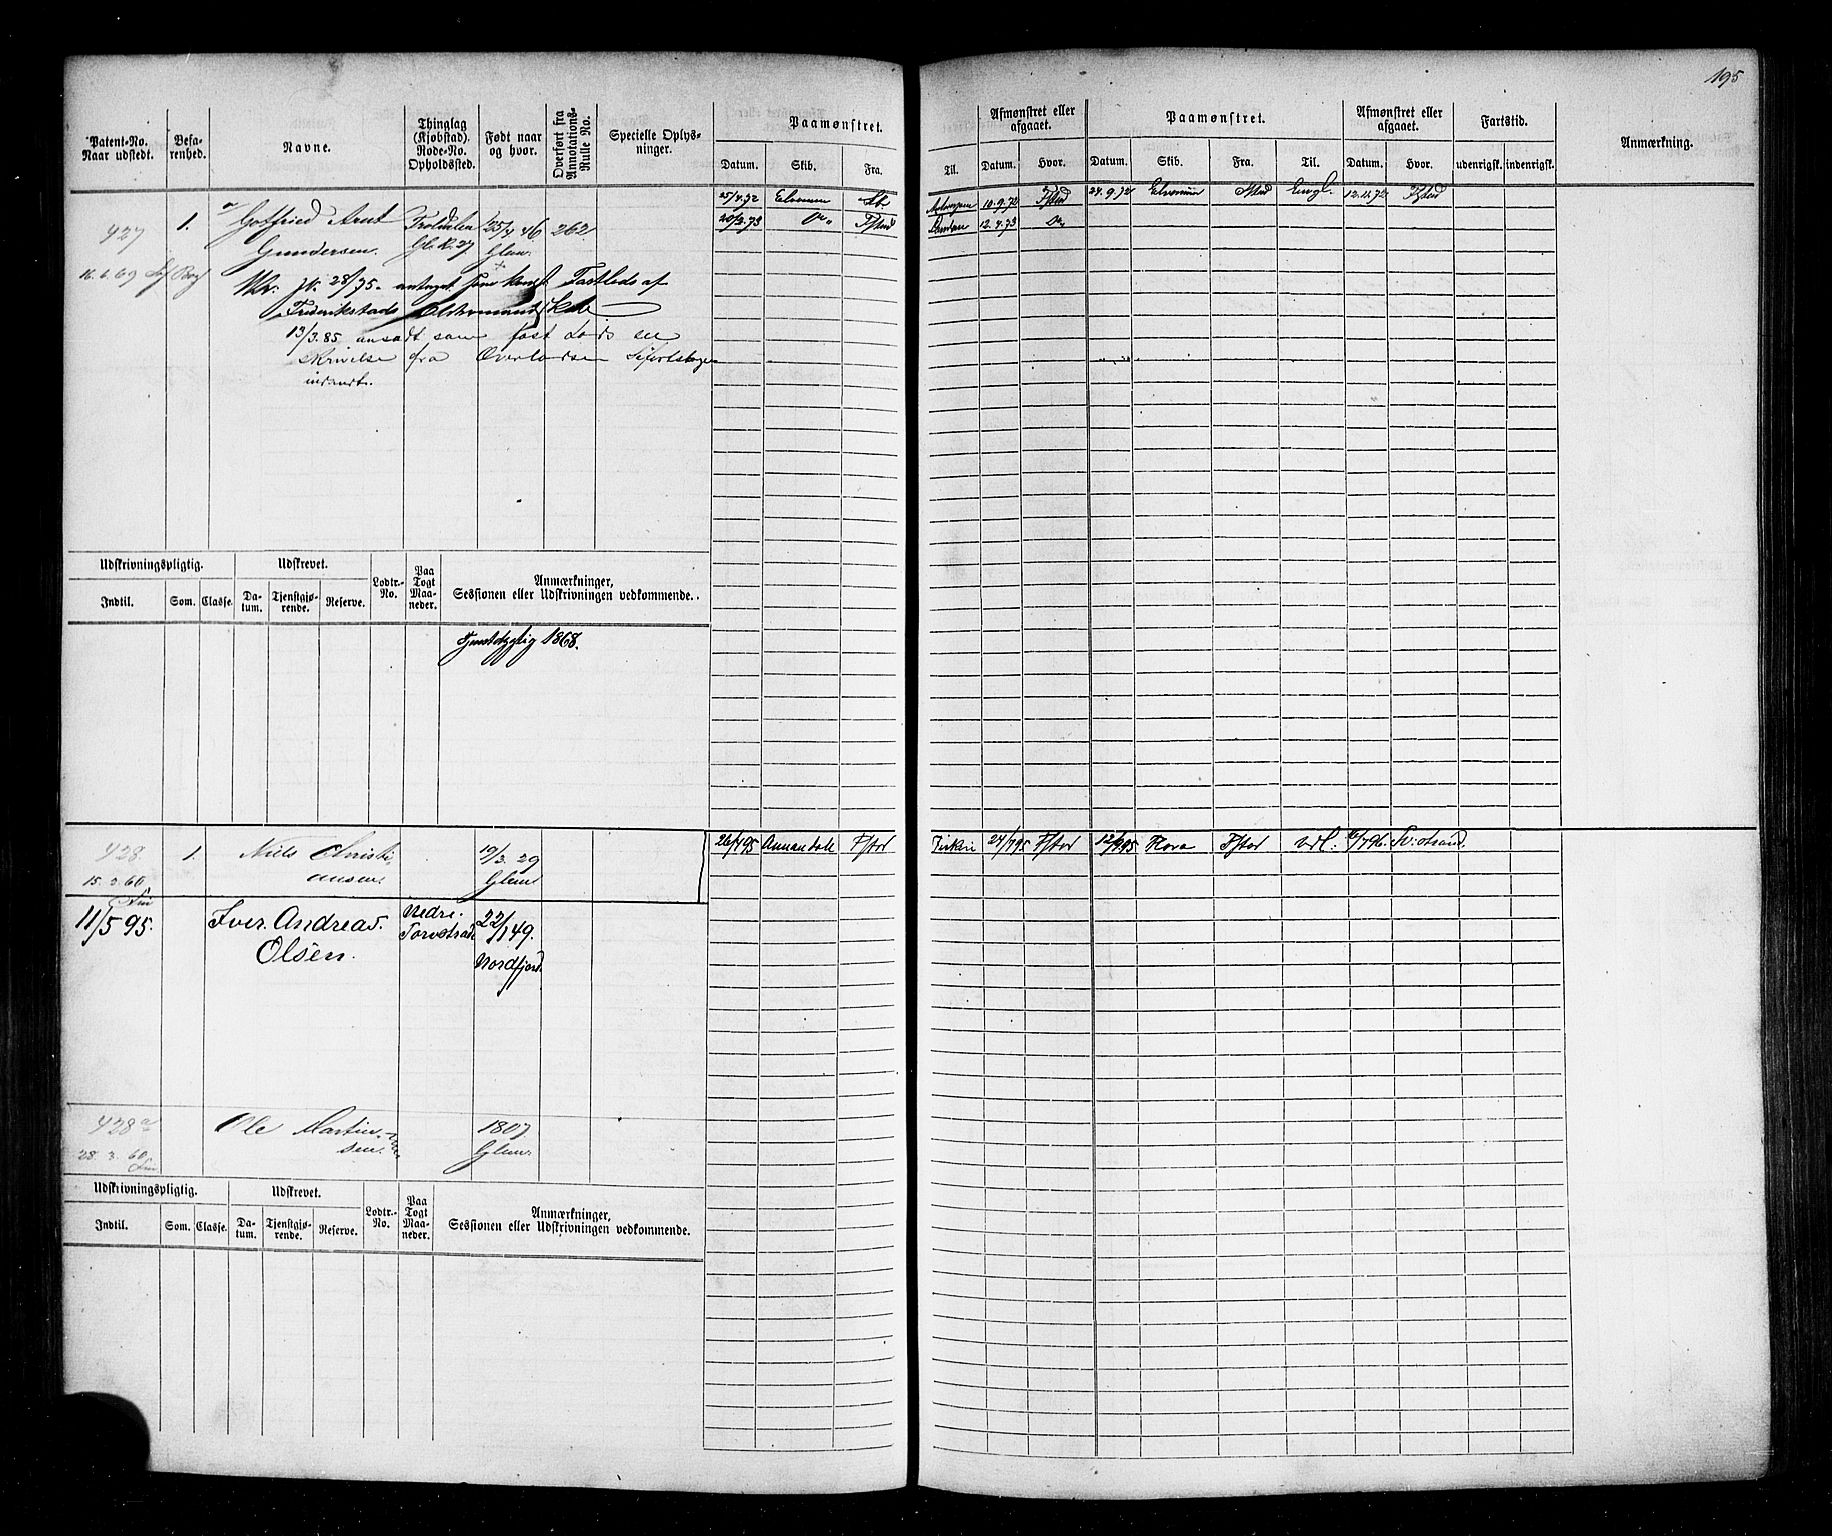 195
Patent-No. Naar udstedt.
Befa-renhed.
Navne.
Thinglag (Kjøbstad). Rode-No. Opholdssted.
Født naar og hvor.
Overført fra Annotations-Rulle No.
Specielle Oplys-ninger.
Paamønstret.
Datum. Skib. Fra.
Til.
Afmønstret eller afgaaet.
Datum. Hvor.
Paamønstret.
Datum. Skib. Fra. Til.
Afmønstret eller afgaaet.
Datum. Hvor.
Fartstid.
udenrigsk. indenrigsk.
Anmærkning.
427 1. Gotfried Arnt 25/4 46 262 25/4.72
Gundersen. Gl. K. 27 Glem.
20/3.73 Do Fstad
Antwerpen 10.9.72 Fstad 24.9.72 Fstad Engl. 12.11.72 Fstad
London 12.4.73 Do
16.6.69
28/75 antaget som Fastlods af
Frederikstads Oldermandskab
13/3.85 ansadt som fast Lods
skrivelse fra Overlodsen Søfartsbogen
indsendt.
Udskrivningspligtig.
Indtil. Som. Classe.
Udskrevet.
Da-tum. Tjenstgjø-rende. Reserve.
Lodtr.-No.
Paa Togt Maa-neder.
Anmærkninger,
Sessionen eller Udskrivningen vedkommende.
1868.
428 1. Niels Christi 19/3. 29
15.3.60 ansen. Glem
26/4 95 Annandale Fstad
24/7 95 Fstad 12/8 95 Flora Fstad Udl.
11/5 95. Iver Andreas Nedre 22/1 49.
Olsen. Torvstrade Nordfjord.
428a Ole Martin 1807
28.3.60 sen. Glem.
Udskrivningspligtig.
Indtil. Som. Classe.
Udskrevet.
Da-tum. Tjenstgjø-rende. Reserve.
Lodtr.-No.
Paa Togt Maa-neder.
Anmærkninger,
Sessionen eller Udskrivningen vedkommende.